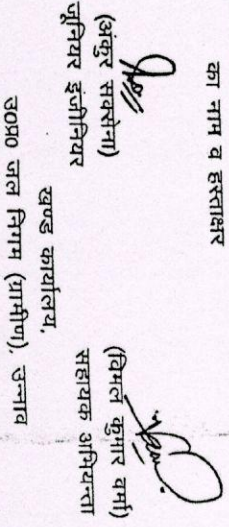 का नाम व हस्ताक्षर
(अंकुर सक्सेना)
जूनियर इंजीनियर
(विमल कुमार वर्मा)
सहायक अभियन्ता
खण्ड कार्यालय,
उ0प्र0 जल निगम (ग्रामीण), उन्नाव